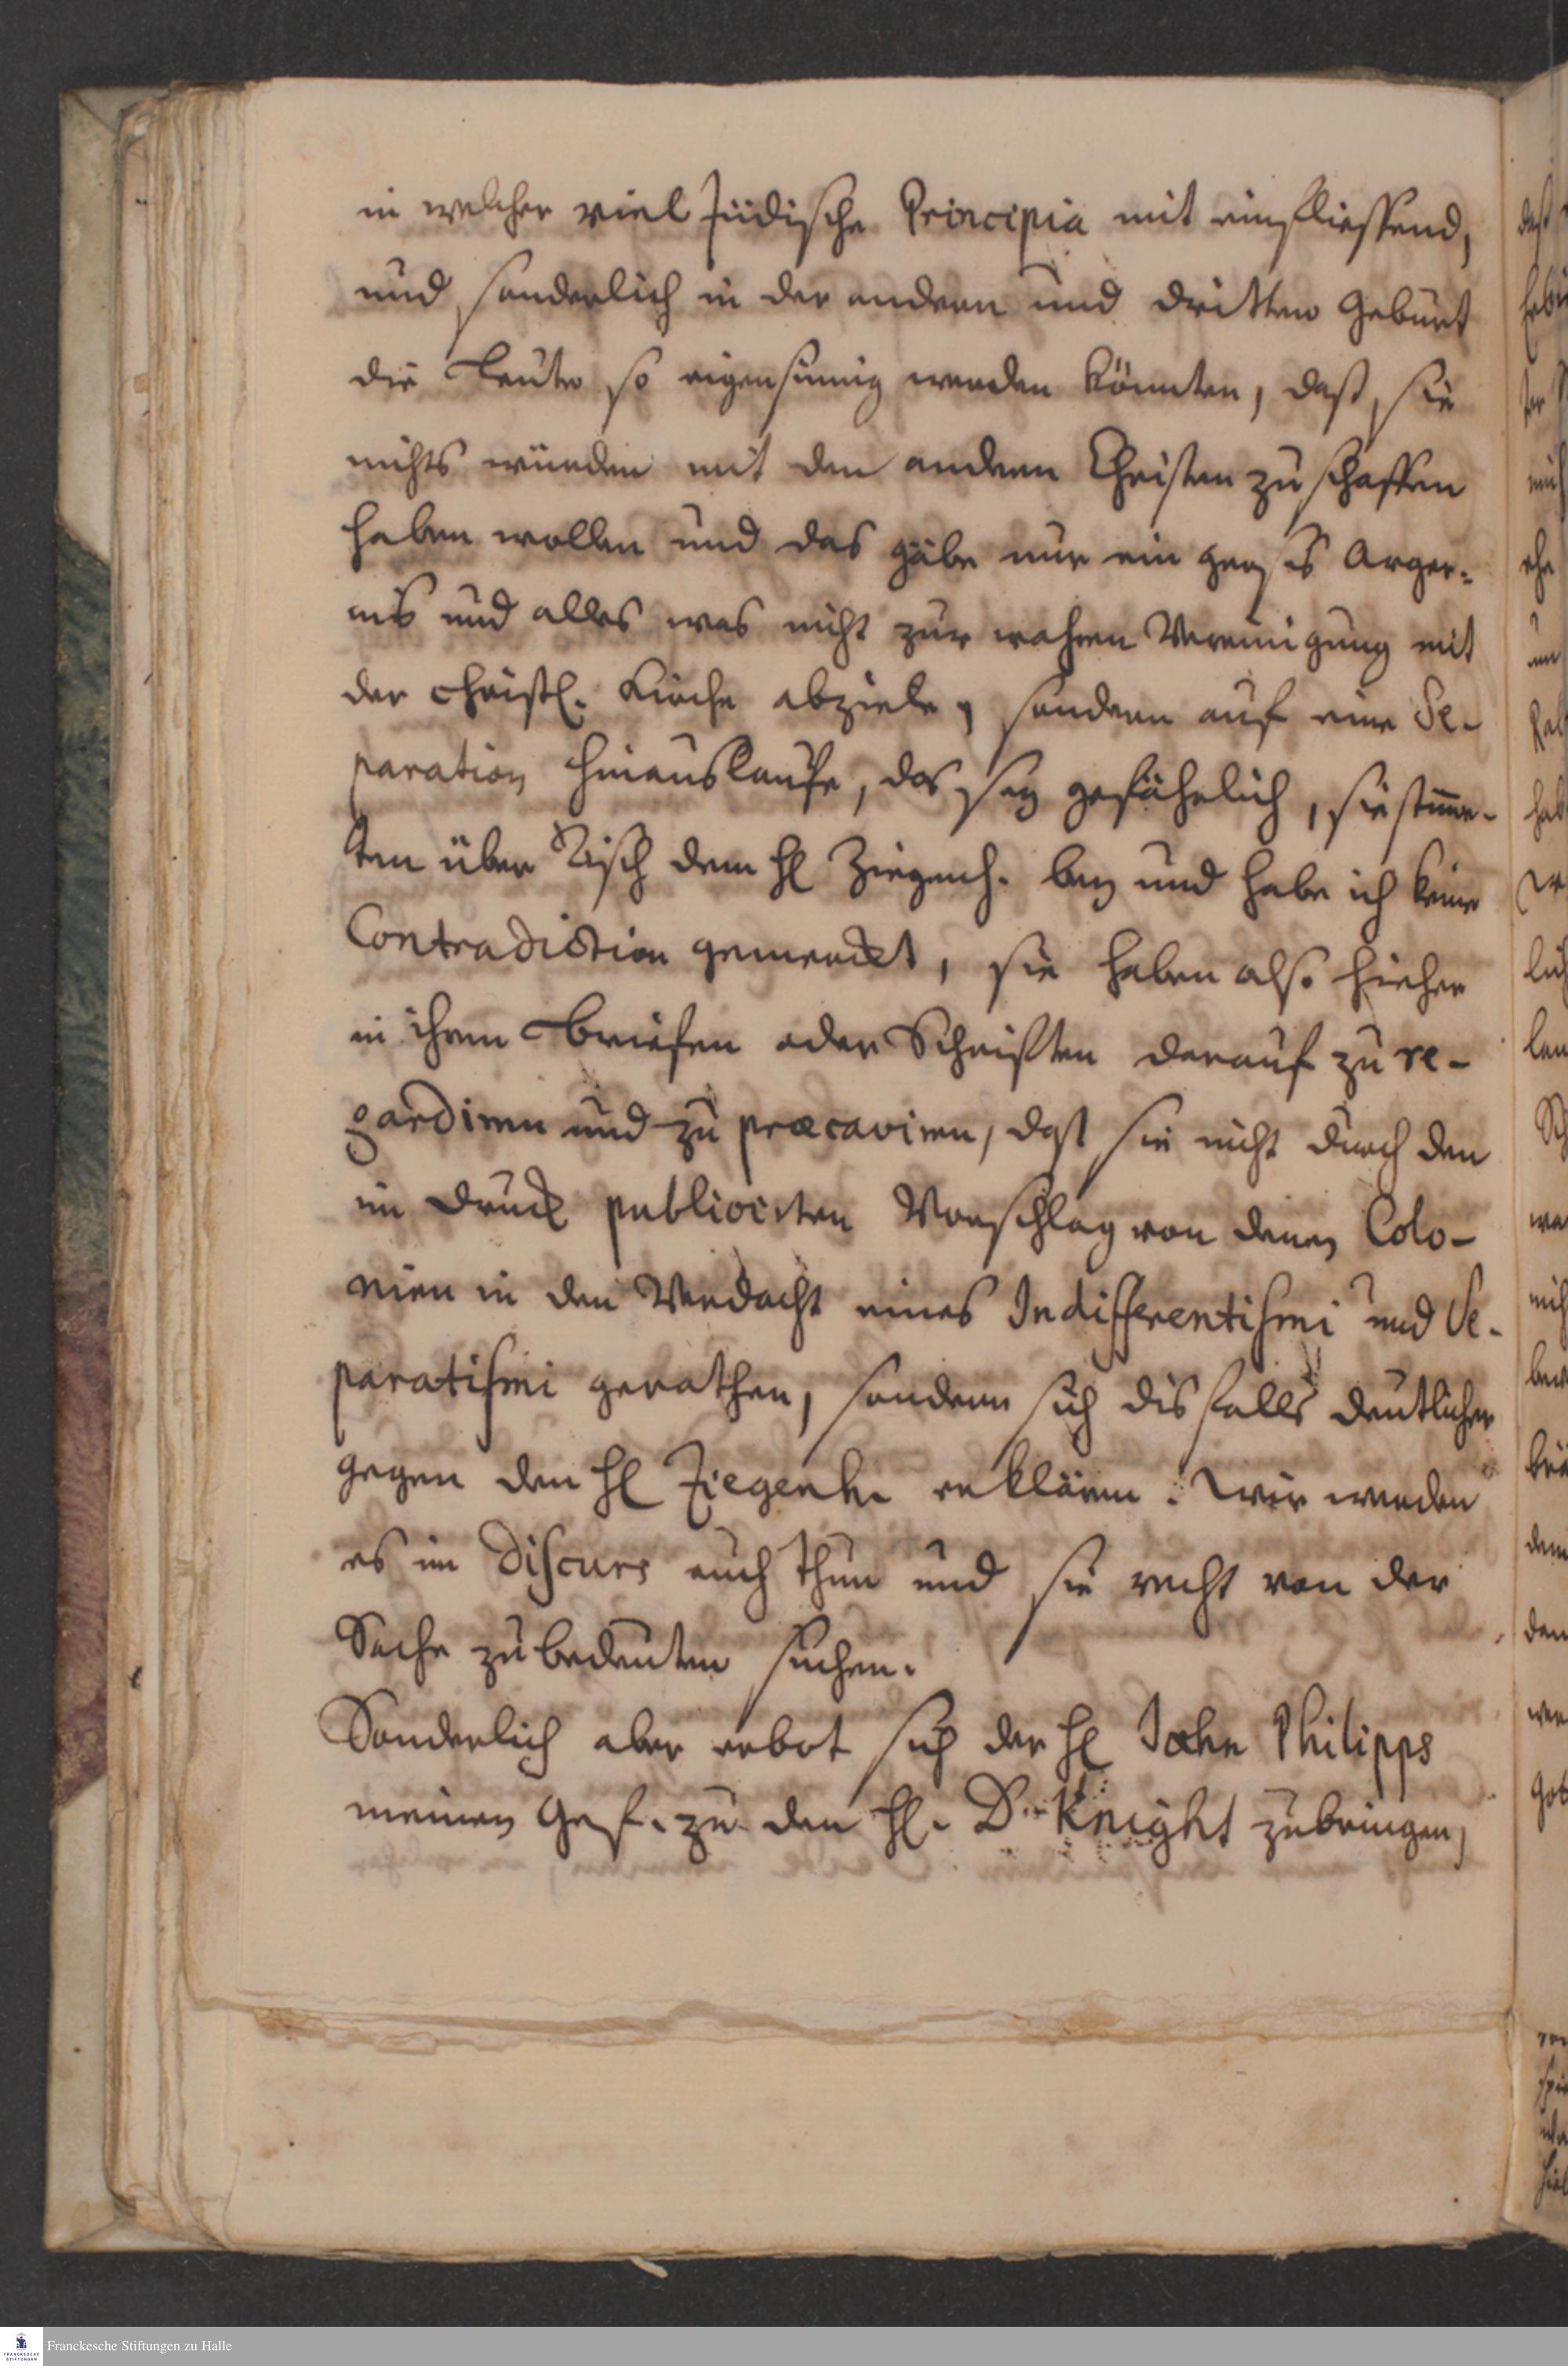 in welcher viel Jüdische Principia mit einfliessend,
und sonderlich in der andern und dritten Geburt
die Leute so eigensinnig werden könnten, dass sie
nichts würden mit den andern Christen zu schaffen
haben wollen und das gäbe nur ein groses Arger-
nis und alles was nicht zur wahren Vereinigung mit
der Christl. Kirche abziele, sondern auf eine Se-
paration hinauslaufe, das sey gefährlich, sie stimme-
ten über Tisch dem H Ziegenh. bey und habe ich keine
Contradiction gemerckt, sie haben also hieher
in ihren Briefen oder Schriften darauf zu re-
gardiren und zu præcaviren, dass sie nicht durch den
im Druck publicirten Vorschlag von denen Colo-
nien in den Verdacht eines Indifferentismi und Se-
paratismi gerathen, sondern sich disfalls deutlicher
gegen den H Ziegenh. erklären. Wir werden
es im Discurs auch thun und sie recht von der
Sache zu bedeuten suchen.
Sonderlich aber erbot sich der H John Philipps
meinen Gef. zu den H. Dr Knight zubringen,
Franckesche Stiftungen zu Halle
FRANCKESCHE
STIFTUNGEN